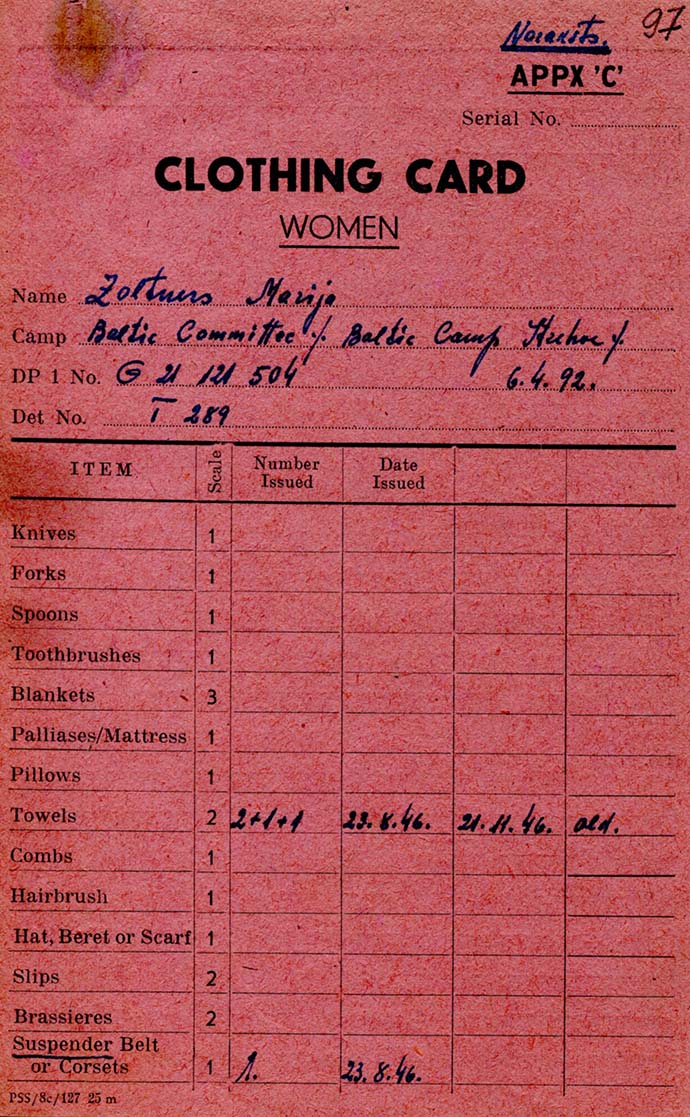 97
APPX 'C'
Serial No.
CLOTHING CARD
WOMEN
Name Zoltners Marija
Camp Baltic Committee /. Baltic Camp /.
DP 1 No. G 21 121 504 6.4.92.
Det No. T 289
ITEM Scale Number Issued Date Issued
Knives 1
Forks 1
Spoons 1
Toothbrushes 1
Blankets 3
Palliases/Mattress 1
Pillows 1
Towels 2 2+1+1 23.8.46. 21.11.46. old.
Combs 1
Hairbrush 1
Hat, Beret or Scarf 1
Slips 2
Brassieres 2
Suspender Belt
or Corsets 1 1. 23.8.46.
PSS/8c/127 25 m